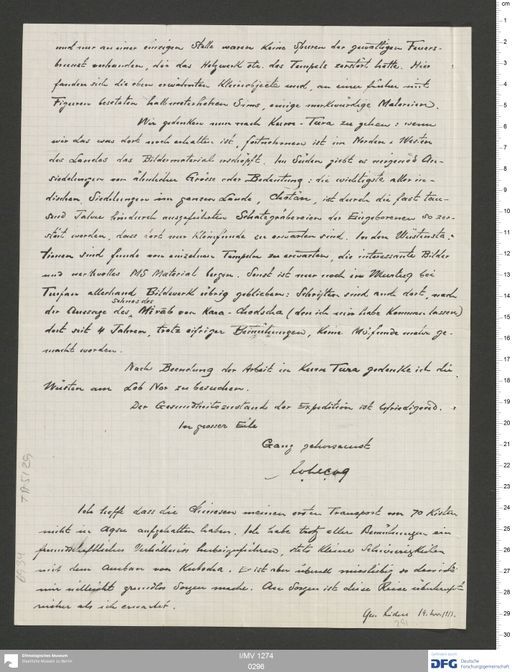 und nur an einer einzigen Stelle waren keine Spuren der gewaltigen Feuers-
brunst vorhanden, die das Holzwerk etc. des Tempels zerstört hatte. Hier
fanden sich die oben erwähnten Kleinobjecte und, an einer früher mit
Figuren besetzten halbmeterhohen Sims, einige merkwürdige Malereien.
Wir gedenken nun nach Kum-Tura zu gehen: wenn
wir das was dort noch erhalten ist, fortnehmen ist im Norden u. Westen
des Landes das Bildermaterial erschöpft. Im Süden giebt es nirgends An-
siedelungen von ähnlicher Grösse oder Bedeutung: die wichtigste aller in-
dischen Siedlungen im ganzen Lande, Chotän, ist durch die fast tau-
send Jahre hindurch ausgeführten Schatzgräbereien der Eingeborenen so zer-
stört worden, dass dort nur Kleinfunde zu erwarten sind. In den Wüstensta-
tionen sind funde von einzelnen Tempeln zu erwarten, die interessante Bilder
und wertvolles MS Material bergen. Sonst ist nur noch im Murtuq bei
Turfan allerhand Bildwerk übrig geblieben: Schriften sind auch dort, nach
der Aussage des Sohnes des Mirab von Kara-Chodscha (den ich mir habe kommen lassen)
dort seit 4 Jahren, trotz eifriger Bemühungen, keine Ms. funde mehr ge-
macht worden.
Nach Beendung der Arbeit in Kum Tura gedenke ich die
Wüsten am Lob Nor zu besuchen.
Der Gesundheitszustand der Expedition ist befriedigend.
In grosser Eile
Ganz gehorsamst
LeCoq
Ich hoffe dass die Chinesen meinen ersten Transport von 70 Kisten
nicht in Aqsu aufgehalten haben. Ich habe trotz aller Bemühungen ein
freundschaftliches Verhältniss herbeizuführen, stets kleine Schwierigkeiten
mit dem Amban von Kutscha. Er ist aber überall misslich so dass ich
mir vielleicht grundlos Sorgen mache. An Sorgen ist diese Reise überhaupt
reicher als ich erwartet.
Ges. Lüders 14.
TA 5129
I/MV 1274
0296
Ethnologisches Museum
Staatliche Museen zu Berlin
DFG
Deutsche
Forschungsgemeinschaft